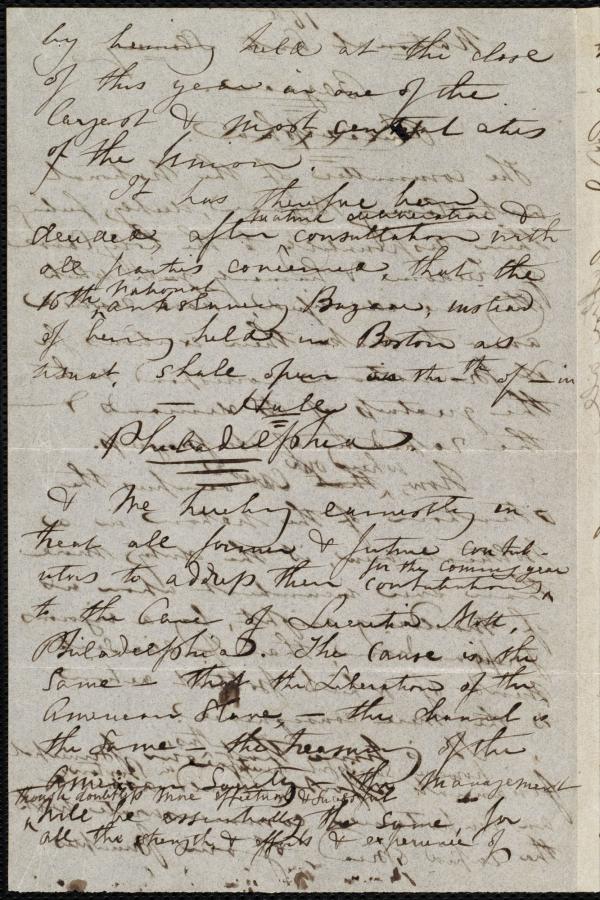 by being held at the close
of this year in one of the
largest & most central cities
of the Union.
It has therefore been
mature deliberation &
decided, after consultation with
all parties concerned, that the
National
16th antislavery Bazaar, instead
of being held in Boston as
usual, shall open in the — th of — in
— Hall
Philadelphia.
& We hereby earnestly en-
treat all former & future contrib-
for the coming year
utors to address their contributions
to the Care of Lucretia Mott,
Philadelphia. The cause is the
same — that the Liberation of the
American Slave, — the channel is
the same — the treasury of the
American Society — the management
though doubtless more effectual & successful
will be essentially the same, for
all the strength & efforts & experience of